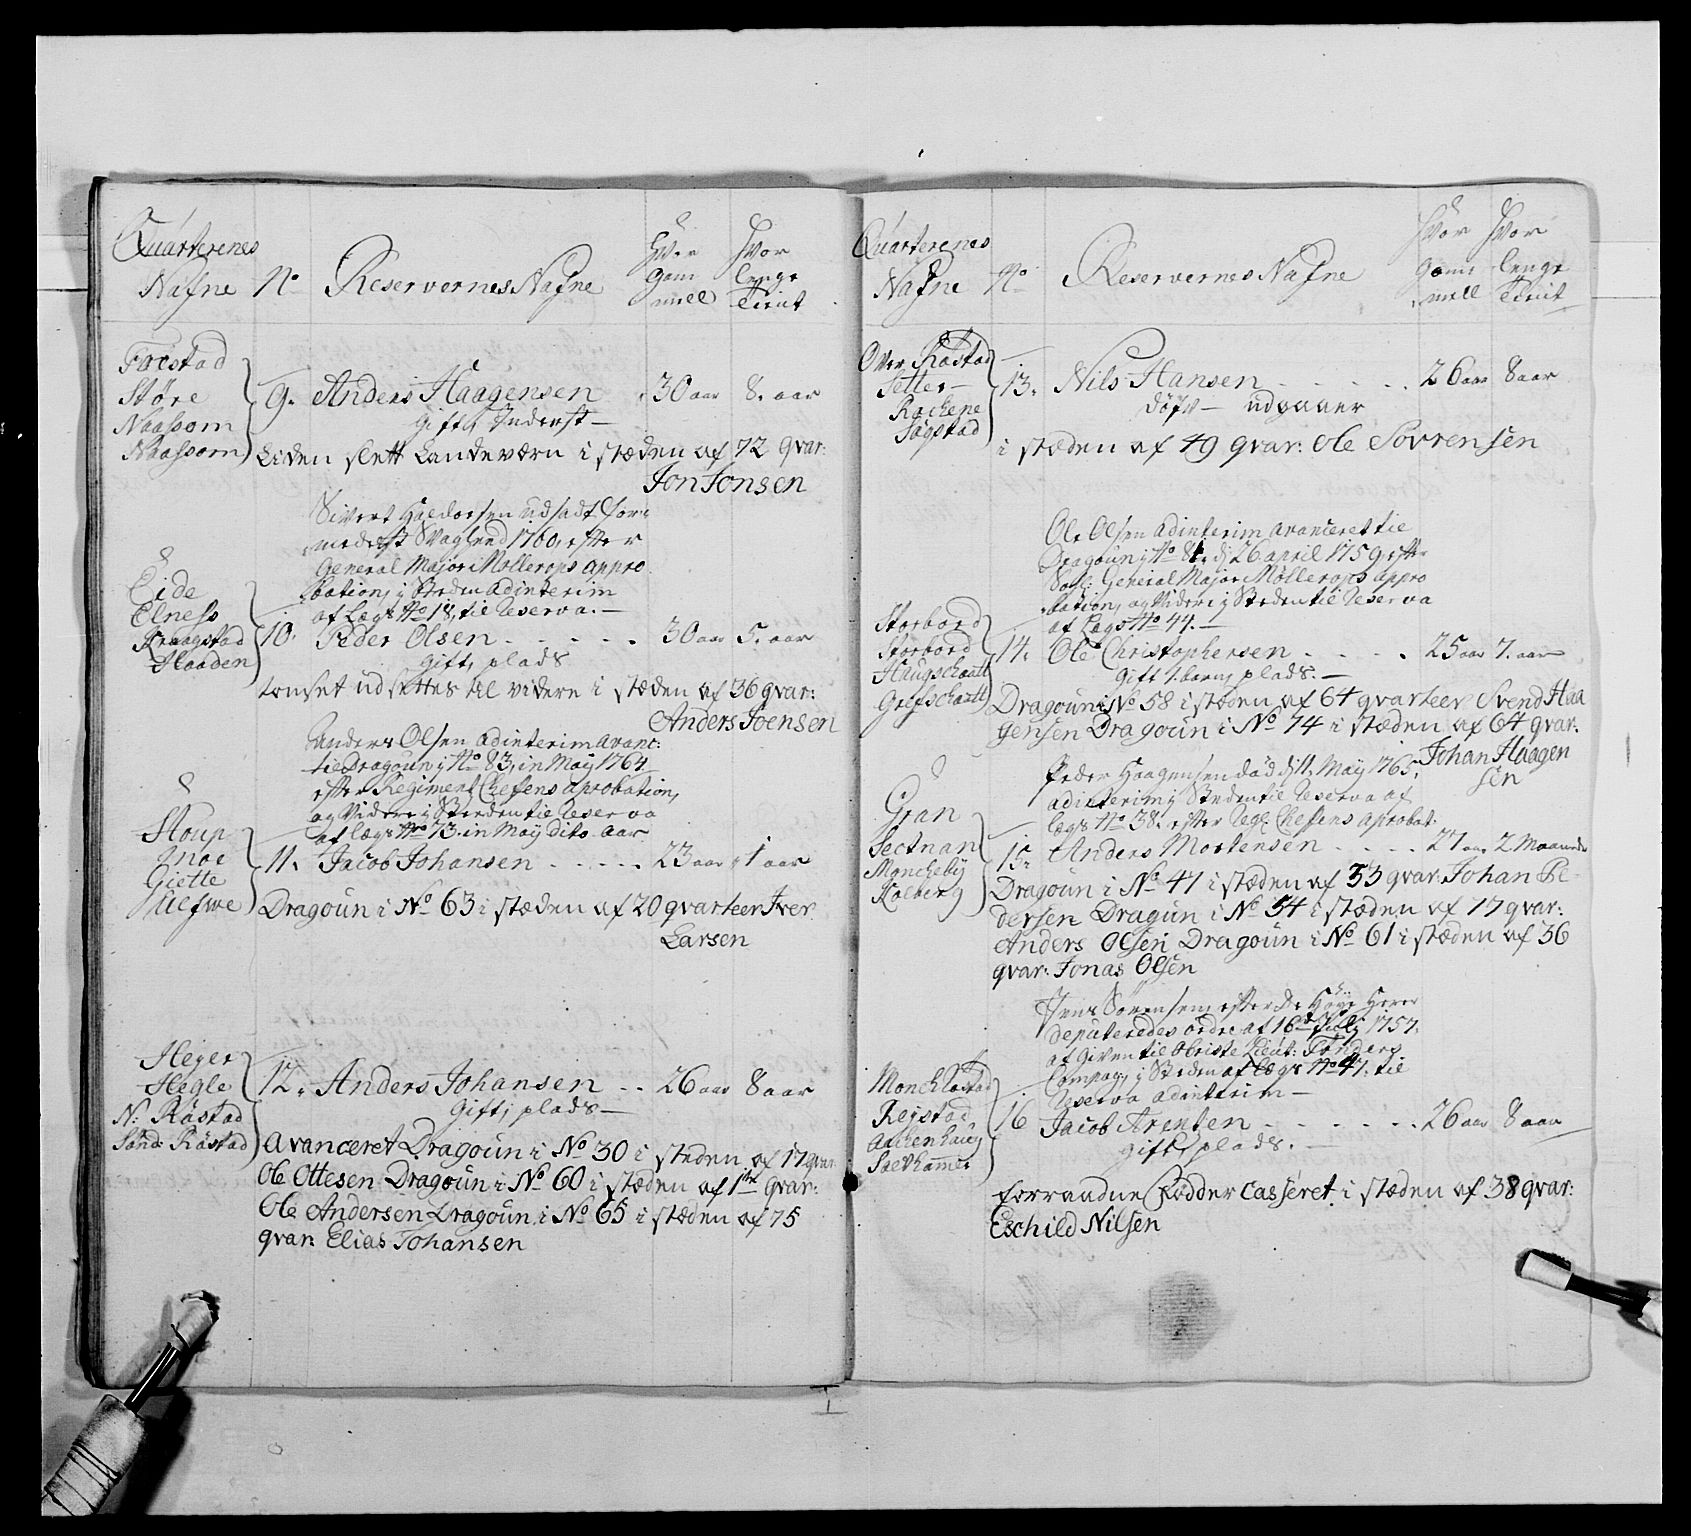 Quarterenes
Nafne No Reservernes Nafne Hvor Gam̄ mell Hvor lenge Tient
Forstad
Støre
Naassom
Naassom
9. Anders Haagensen 30 aar 8. aar
Gift, Inderst —
Liden slett Landeværn i stæden af 72 qvar:
Jon Jonsen
Sivert Haldorsen udsadt for-
General Major Møllerops appro
bation, i Steden adinterim
af Lægs No 18, til Reserva. —
Eide
Elness
Kraagstad
Haaden
10. Peder Olsen 30 aar 5. aar
Gift, plads
tonset udsettes til videre i stæden af 36 qvar:
Anders Joensen
Anders Olsen adinterim avanc:
til Dragoun i No 83, in Maÿ 1764
efter Regiment Chefens aprobation,
og Videre i Steden til Reserva
af lægs No 73. in Maÿ dito aar
Stoup
Moe
Giette
11. Jacob Johansen 23 aar 1 aar
Dragoun i No 63 i stæden af 20 qvarteer Iver
Larsen
Heger
Hegle
N: Råstad
Sønd: Råstad
12. Anders Johansen 26 aar 8 aar
Gift, plads —
Avanceret Dragoun i No 30 i steden af 17 qvar:
Ole Ottesen Dragoun i No 60 i stæden af 1ste qvar:
Ole Andersen Dragoun i No 65 i stæden af 75
qvar: Elias Johansen
Quarterenes
Nafne No Reservernes Nafne Hvor Gam̄ mell Hvor lenge Tient
Over Råstad
Setter
Rochene
Søgstad
13. Nils Hansen 26 aar 8 aar
døfv — udgaaer
i stæden af 49 qvar: Ole Sövrensen
Ole Olsen adinterim avanceret til
Dragoun i No 81, d: 26 april 1759, efter
General Major Møllerops appro
bation, og Videre i Steden til Reserva
af Lægs No 44. —
Storbord
Storbord
Haugschaatt
Grefschaatt
14. Ole Christophersen 25 aar 7. aar
Gift 1. barn, plads. —
Dragoun i No 58 i stæden af 64 qvarteer Svend Haa
gensen Dragoun i No 74 i stæden af 64 qvar:
Johan Haagen
sen
Peder Haagensen död d: 11. Maÿ 1765,
adinterim i Steden til Reserva af
lægs No 38. efter Regl: Chefens aprobat:
Gran
Sectnan
Moncheby
Kolberg
15. Anders Mortensen 27 aar 2 Maaneder
Dragoun i No 41 i stæden af 33 qvar: Johan Pe-
dersen Dragun i No 54 i stæden af 17 qvar:
Anders Olsen Dragoun i No 61 i stæden af 36
qvar: Jonas Olsen
Jens Sörensen, efter De Høye Herrer
Deputeredes ordre af 16de Julÿ 1757.
af Given til Obriste Lieut: Tønders
Compag, i Steden af Lægs No 47. til
Reserva adinterim —
Monchrostad
Reistad
Aachenhaug
Soethammer
16 Jacob Arentsen 26 aar 8 aar
Gift, plads. —
forraadne Fødder Casseret i stæden af 38 qvar:
Eschild Nilsen